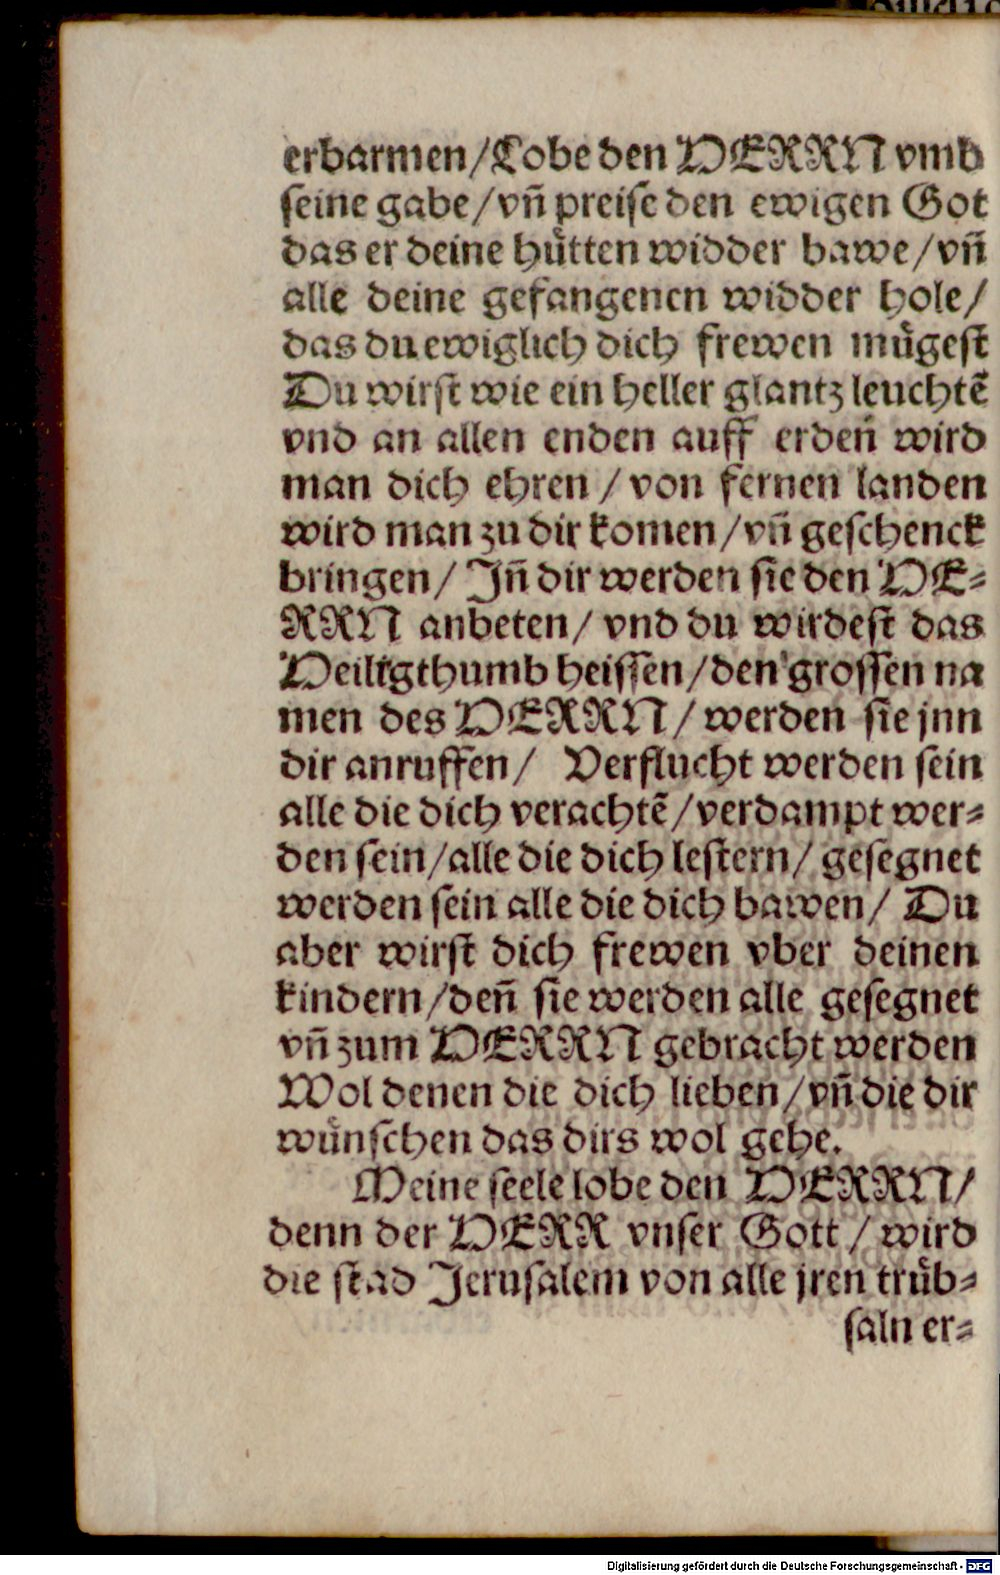 erbarmen/Lobe den HERRN vmb
seine gabe/vñ preise den ewigen Got
das er deine huͤtten widder bawe/vñ
alle deine gefangenen widder hole/
das du ewiglich dich frewen muͤgest
Du wirst wie ein heller glantz leuchtē
vnd an allen enden auff erden wird
man dich ehren / von fernen landen
wird man zu dir komen/vñ geschenck
bringen/ Jñ dir werden sie den HE-
RRN anbeten/ vnd du wirdest das
Heiligthumb heissen/den grossen na
men des HERRN/ werden sie jnn
dir anruffen/ Verflucht werden sein
alle die dich verachtē/verdampt wer-
den sein/alle die dich lestern/ gesegnet
werden sein alle die dich bawen/ Du
aber wirst dich frewen vber deinen
kindern/deñ sie werden alle gesegnet
vñ zum HERRN gebracht werden
Wol denen die dich lieben/vñ die dir
wuͤnschen das dirs wol gehe.
Meine seele lobe den HERRN/
denn der HERR vnser Gott / wird
die stad Jerusalem von alle jren truͤb-
saln er-
Digitalisierung gefördert durch die Deutsche Forschungsgemeinschaft - DFG